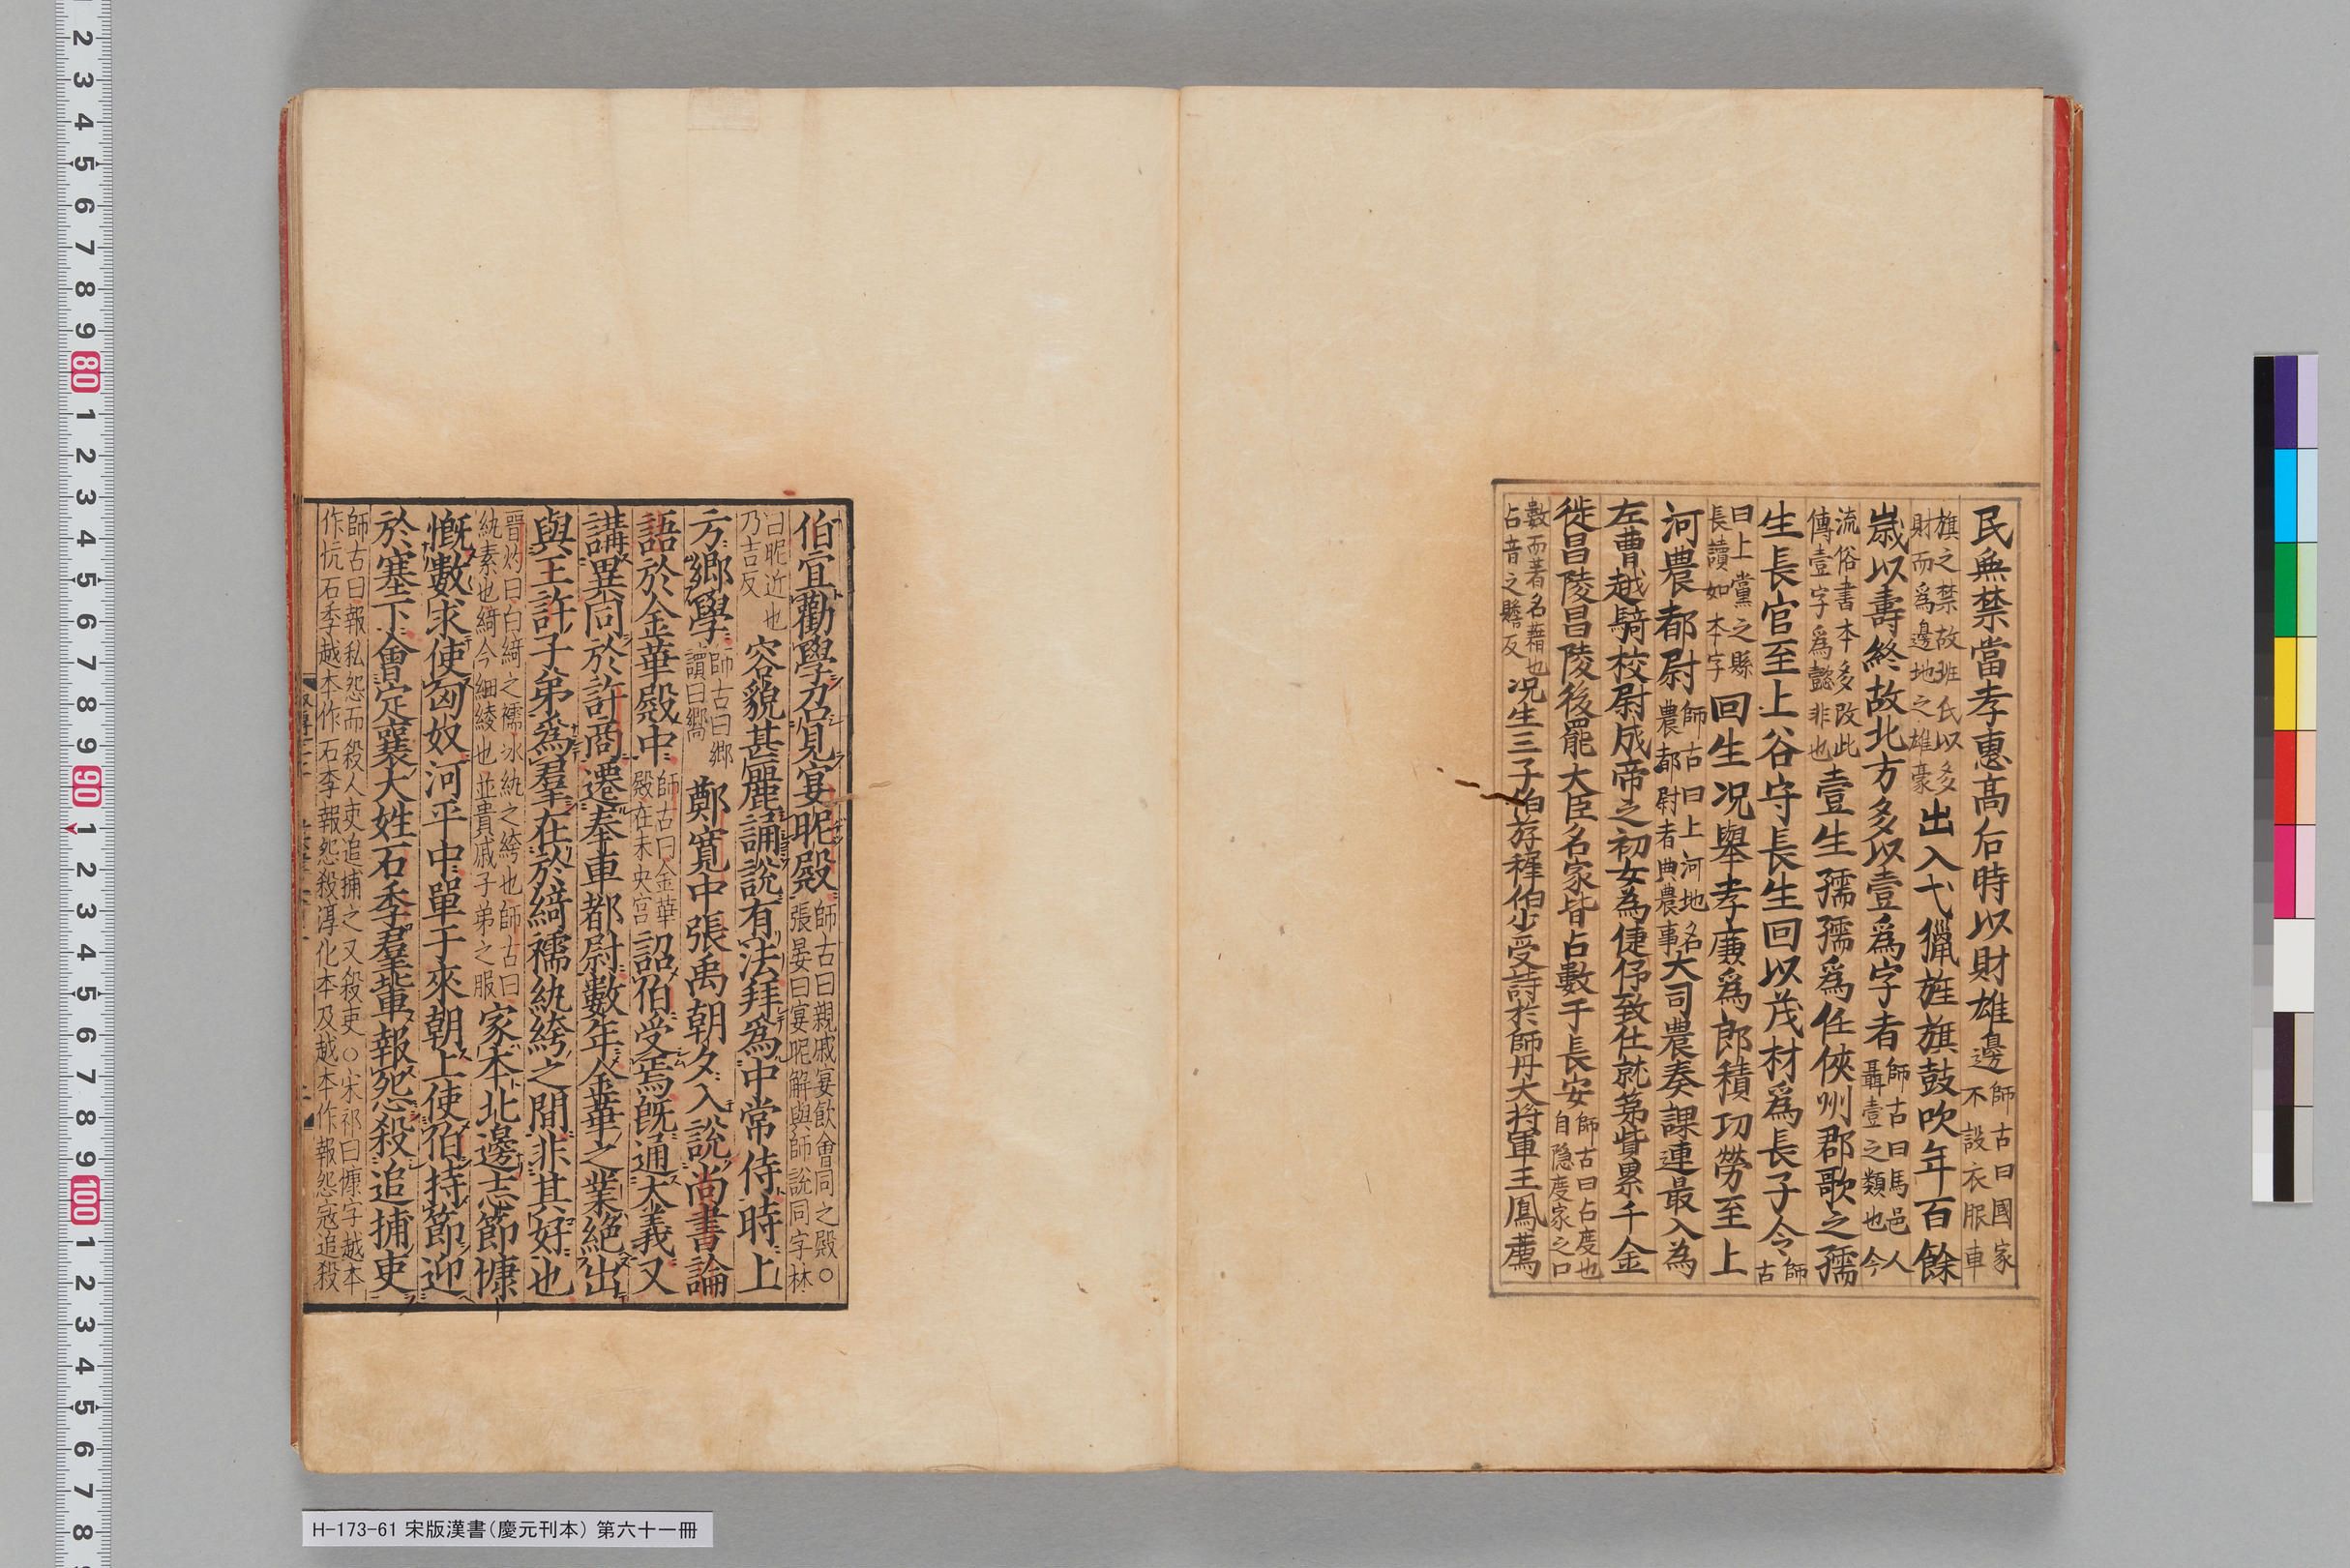 民無禁當孝惠高后時以財雄邊師古曰國家不設衣服車
旗之禁故班氏以多財而爲邊地之雄豪出入弋獵旌旗鼓吹年百餘
歲以壽終故北方多以壹爲字者師古曰馬邑人聶壹之類也今
流俗書本多改此傳壹字爲懿非也壹生孺孺爲任俠州郡歌之孺
生長官至上谷守長生回以茂材爲長子令師古
曰上黨之縣長讀如本字回生况舉孝廉爲郎積功勞至上
河農都尉師古曰上河地名農都尉者典農事大司農奏課連最入為
左曹越騎校尉成帝之初女為倢伃致仕就第貲累千金
徙昌陵昌陵後罷大臣名家皆占數于長安師古曰占度也自隠度家之口
數而著名藉也占音之贍反况生三子伯斿穉伯少受詩於師丹大將軍王鳳薦
伯宜勸學召見宴昵殿師古曰親戚宴飲會同之殿○張晏曰宴昵解與師說同字林
曰昵近也乃吉反容貌甚麗誦說有法拜爲中常侍時上
方鄉學師古曰鄉讀曰嚮鄭寬中張禹朝夕入說尚書論
語於金華殿中師古曰金華殿在未央宫詔伯受焉旣通大義又
講異同於許商遷奉車都尉數年金華之業絶出
與王許子弟爲羣在於綺襦紈絝之間非其好也
晉灼曰白綺之襦冰紈之絝也師古曰紈素也綺今細綾也並貴戚子弟之服家本北邊志節慷
慨數求使匈奴河平中單于來朝上使伯持節迎
於塞下會定襄大姓石李羣輩報怨殺追捕吏
師古曰報私怨而殺人吏追捕之又殺吏○宋祁曰慷字越本作忼石季越本作石李報怨殺淳化本及越本作報怨寇追殺
H-173-61 宋版漢書(慶元刊本) 第六十一冊